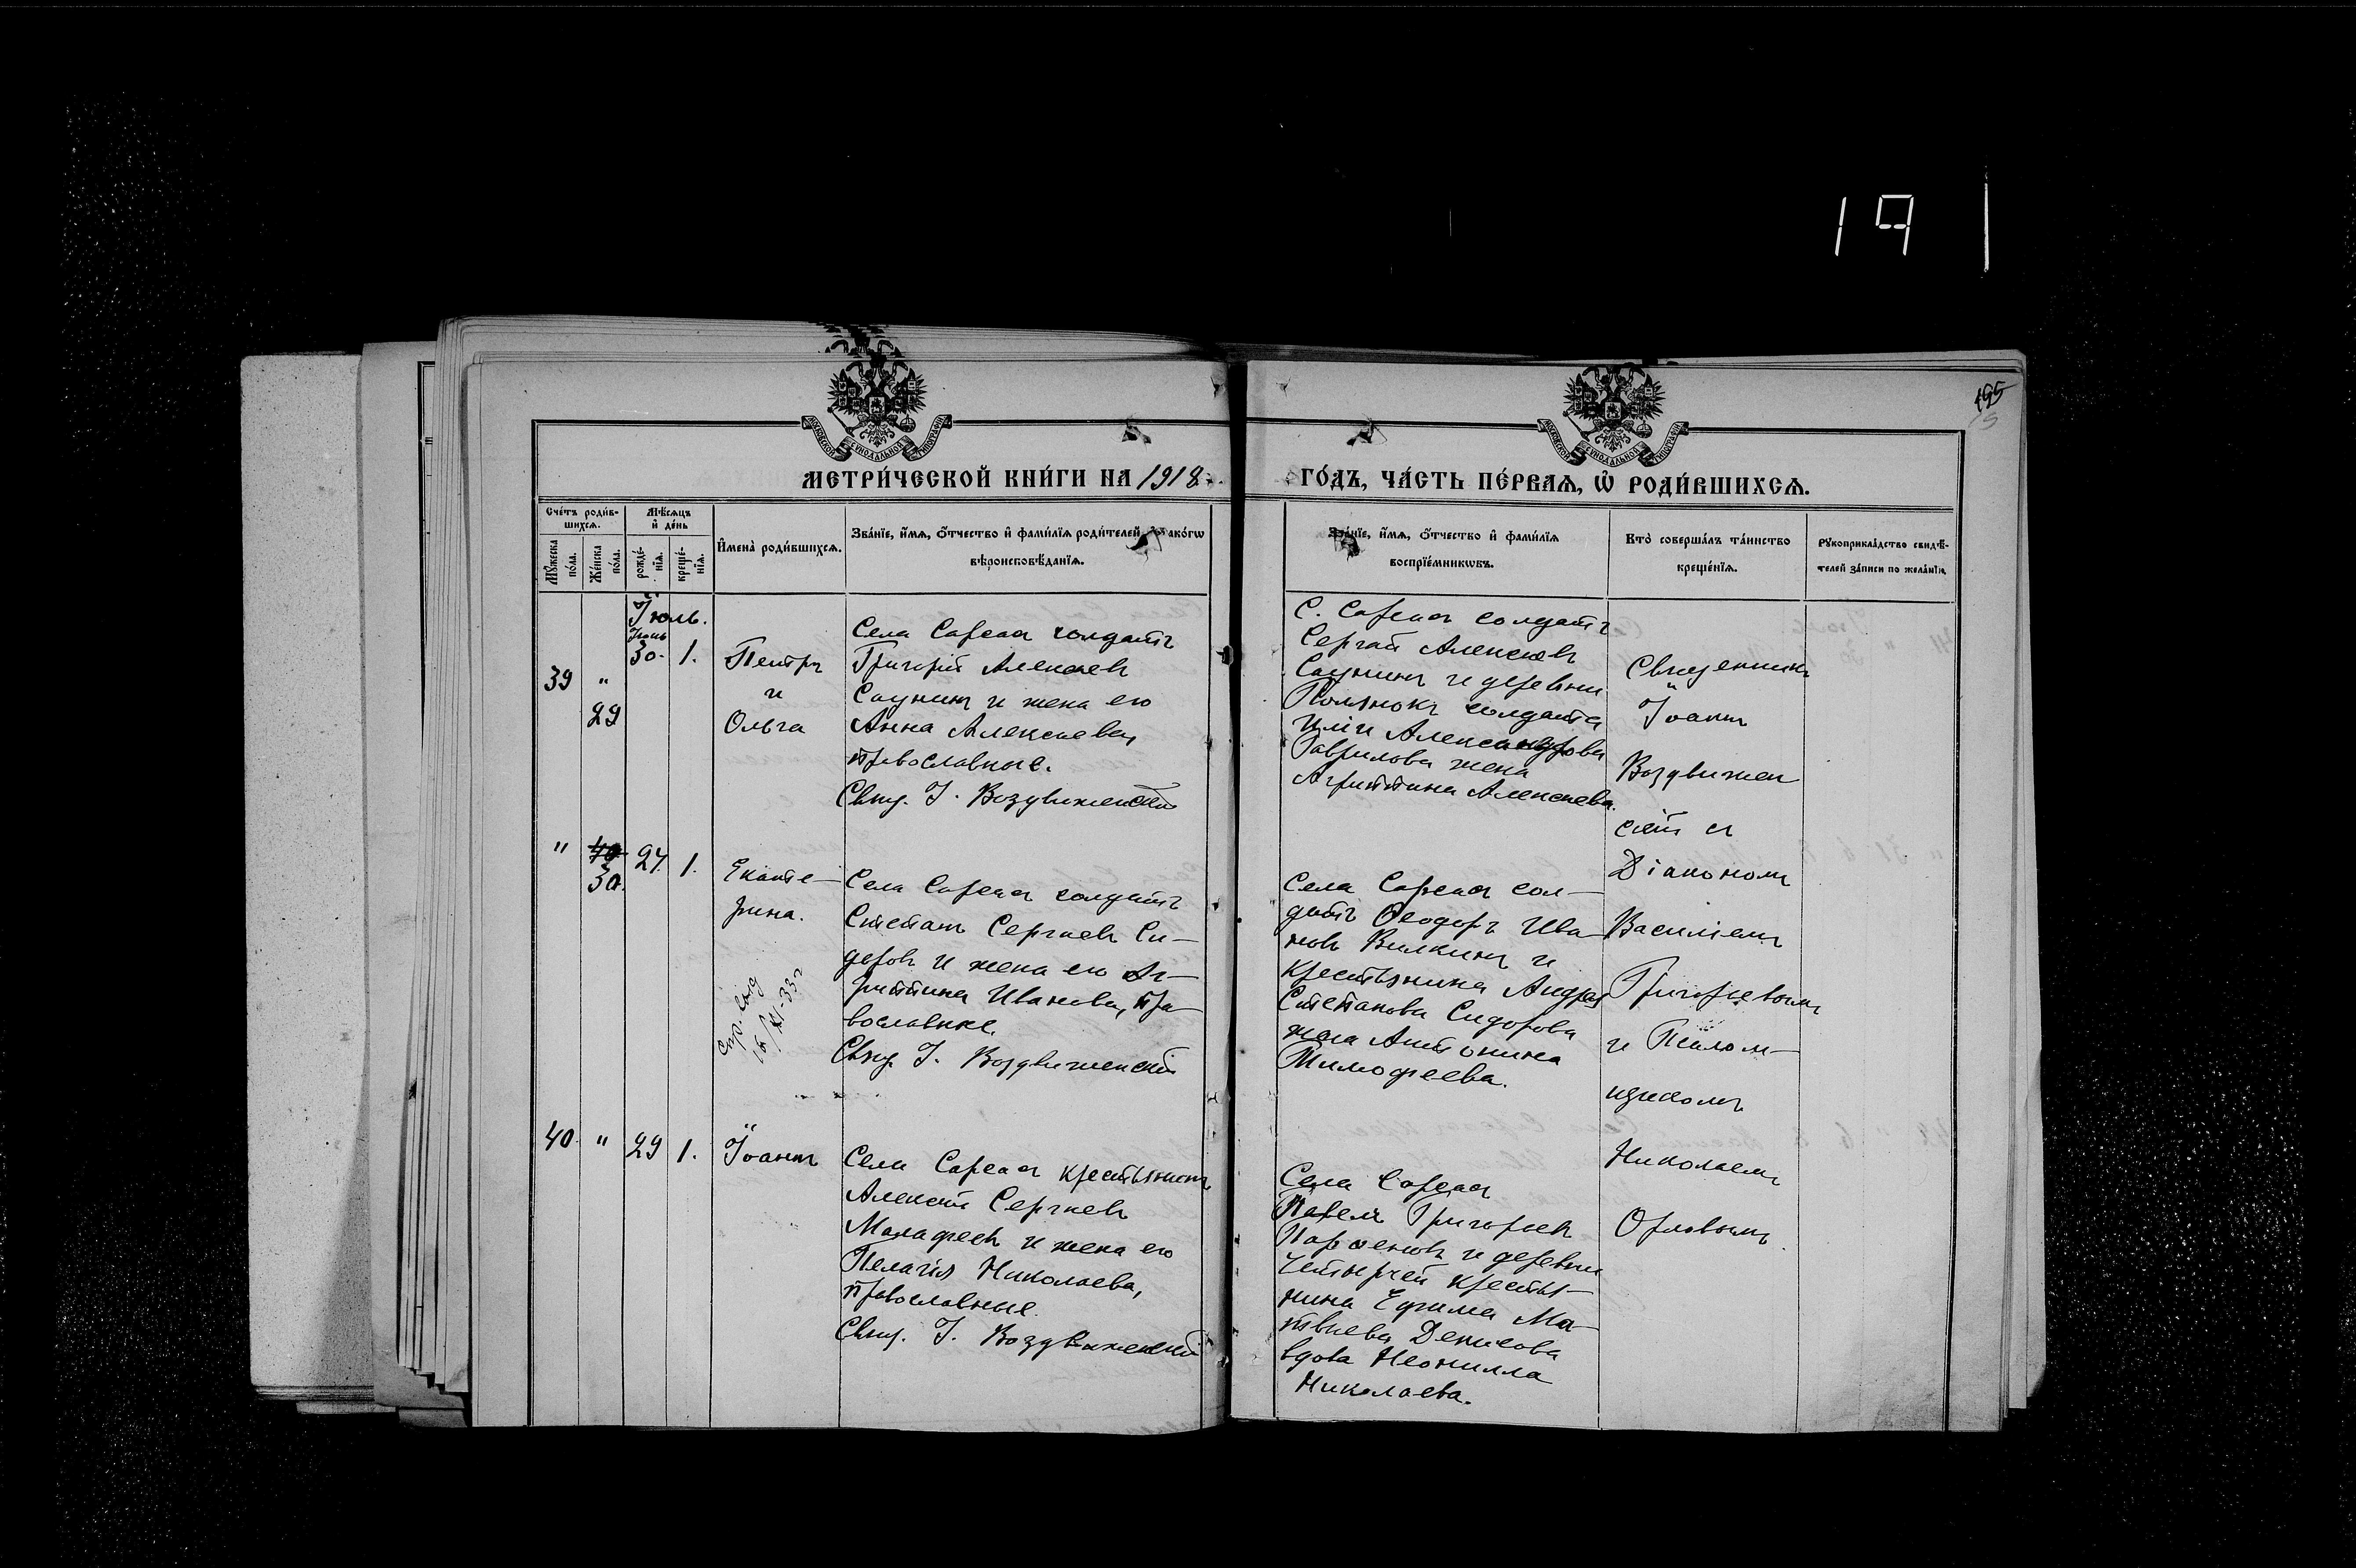 191
195
МЕТРИ́ЧЕСКОЙ КНИ́ГИ НА 1918
ГО́ДЪ, ЧА́СТЬ ПЕ́РВАѦ, Ѡ РОДИ́ВШИХСѦ.
Сче́тъ роди́в-
шихсѧ.
Мꙋжеска по́ла.
Же́нска по́ла.
Мѣ́сѧцъ и де́нь
рожде́-
нїѧ.
креще́-
нїѧ.
И҆мена̀ роди́вшихсѧ.
Зва́нїе, и҆́мѧ, о҆́тчество и҆ фами́лїѧ роди́телей, и҆ како́гѡ
вѣроисповѣ́данїѧ.
Зва́нїе, и҆́мѧ, о҆́тчество и҆ фами́лїѧ
воспрїе́мникѡвъ.
Кто̀ соверша́лъ та́инство
креще́нїѧ.
Рꙋкоприкла́дство свидѣ́-
телей за́писи по жела́нїю.
Іюль.
Іюнь
39 " 30. 1.
29
Петръ
и
Ольга
Села Сареса солдатъ
Григорій Алексѣевъ
Саунинъ и жена его
Анна Алексѣева,
православные.
Свящ. І. Воздвиженскій
С. Сареса солдатъ
Сергѣй Алексѣевъ
Саунинъ и деревни
Полянокъ солдата
Иліи Александрова
Гаврилова жена
Агриппина Алексѣева.
Священникъ
Іоаннъ
Воздвижен
скій съ
Діакономъ
Василіемъ
Григорьевымъ
и Псалом-
щикомъ
Николаемъ
Орловымъ.
" 40 30. 24. 1.
Екате-
рина.
Села Сареса солдатъ
Степанъ Сергѣевъ Си-
доровъ и жена его Аг-
риппина Иванова, пра-
вославные.
Свящ. І. Воздвиженскій
Села Сареса сол-
датъ Ѳеодоръ Ива-
новъ Вилкинъ и
крестьянина Андрея
Степанова Сидорова
жена Антонина
Тимофеева.
40. " 29 1.
Іоаннъ
Села Сареса крестьянинъ
Алексѣй Сергѣевъ
Малафеевъ и жена его
Пелагія Николаева,
православные.
Свящ. І. Воздвиженскій
Села Сареса
Павелъ Григорьевъ
Парѳеновъ и деревни
крестья-
нина Ефима Ма-
твѣева Денисова
вдова Неонилла
Николаева.